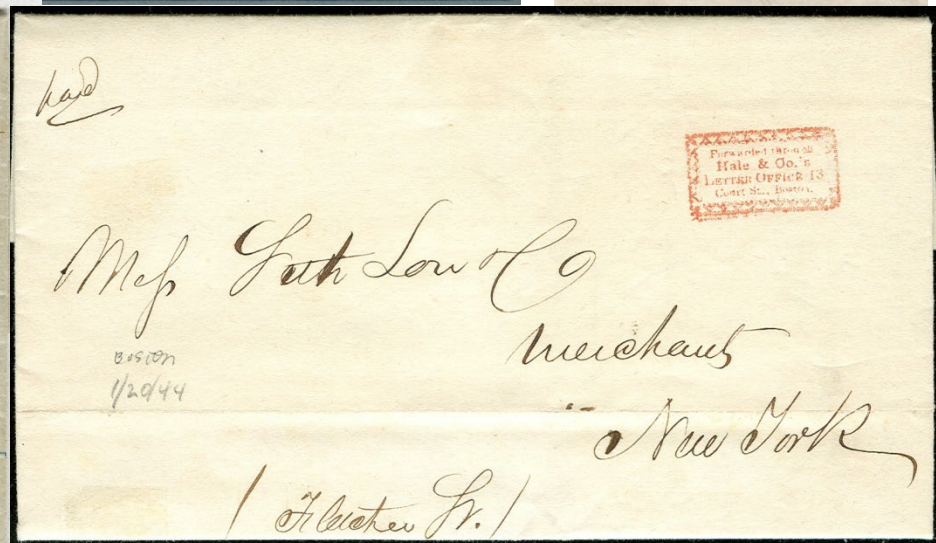 paid
Forwarded through
Hale & Co.'s
LETTER OFFICE 13
Court St., Boston.
Mess Seth Low & Co
Merchants
Boston
1/20/44
New York
/ Fletcher St. /